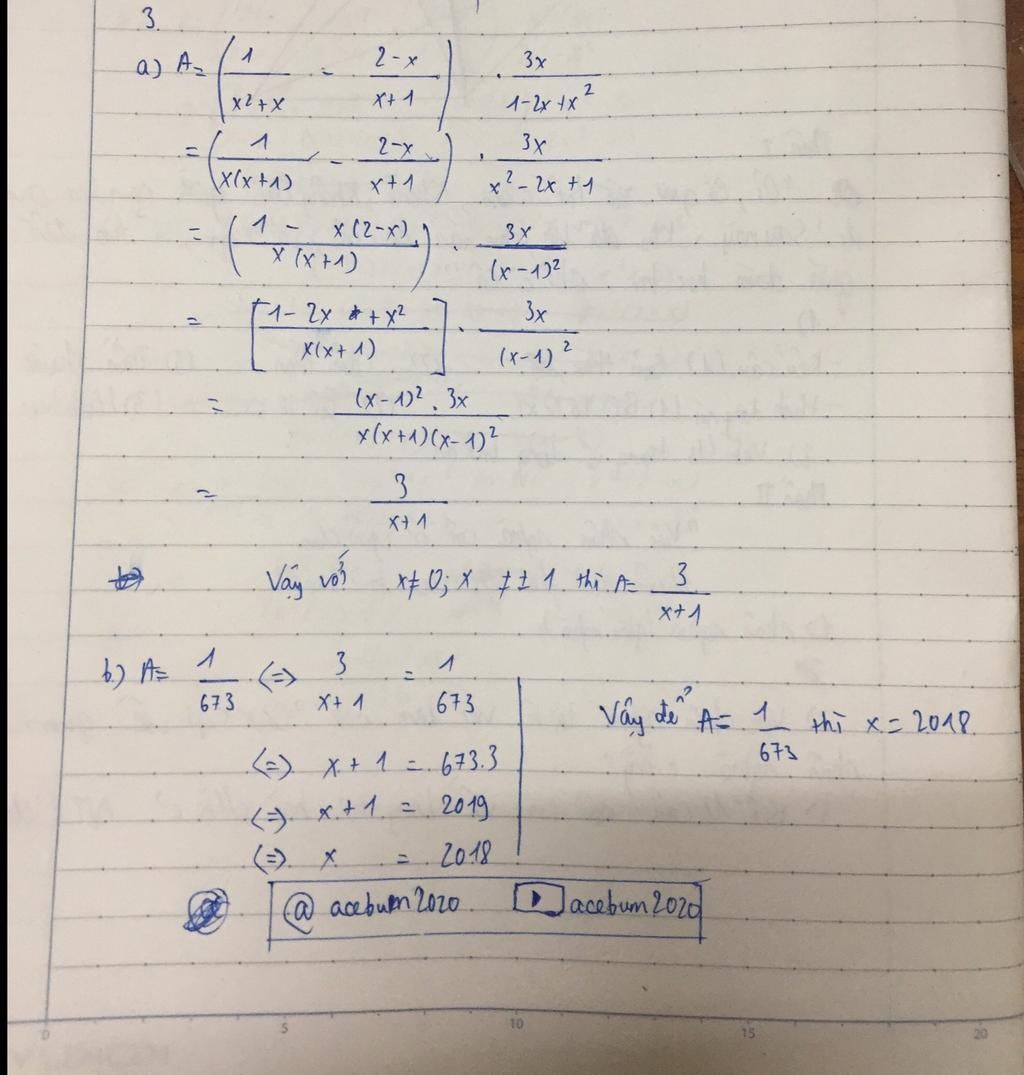 3.
a) A = (1/(x²+x) - (2-x)/(x+1)) . 3x/(1-2x+x²)
= (1/(x(x+1)) - (2-x)/(x+1)) . 3x/(x²-2x+1)
= ((1 - x(2-x))/(x(x+1))) . 3x/(x-1)²
= [(1-2x+x²)/(x(x+1))] . 3x/(x-1)²
= ((x-1)².3x)/(x(x+1)(x-1)²)
= 3/(x+1)
Vậy với x≠0; x ≠ ±1 thì A= 3/(x+1)
b.) A= 1/673 <=> 3/(x+1) = 1/673
<=> x+1 = 673.3
<=> x+1 = 2019
<=> x = 2018
Vậy để A= 1/673 thì x = 2018.
@ acebum2020 acebum2020
0 5 10 15 20